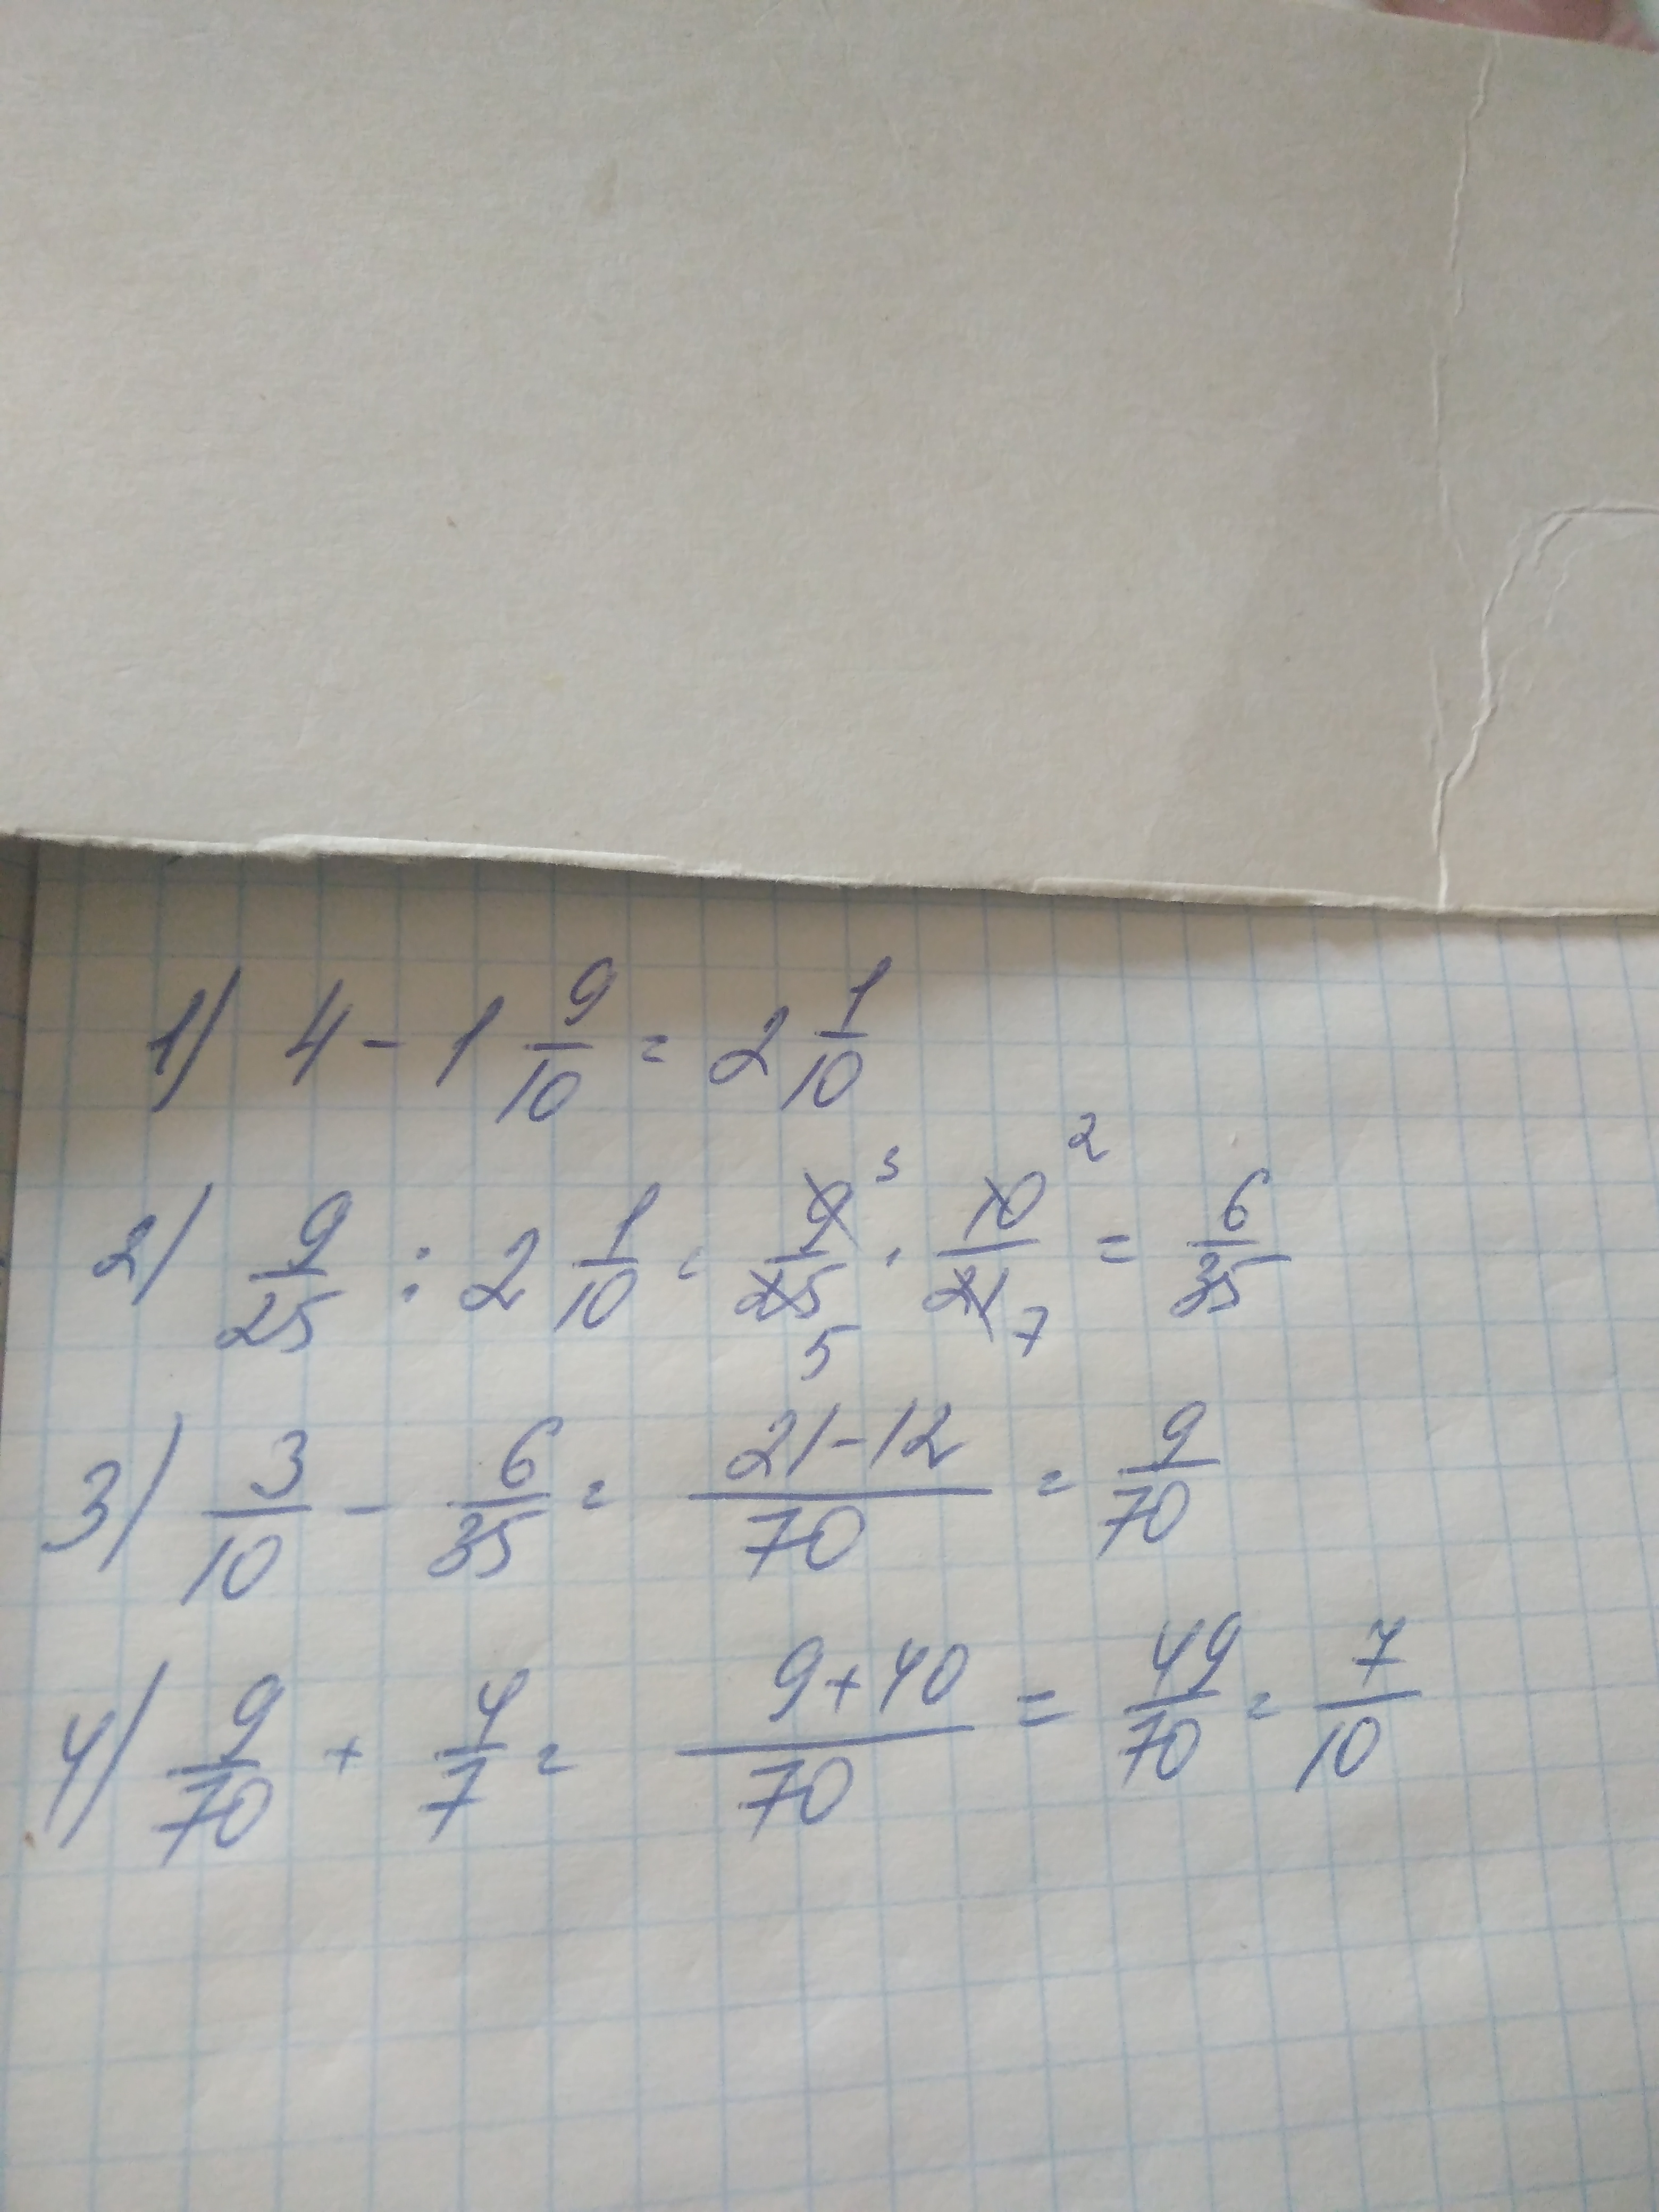 1) 4 - 1 9/10 = 2 1/10
2) 9/25 : 2 1/10 = 9/25 · 10/21 = 6/35 (3 2 5 7)
3) 3/10 - 6/35 = (21-12)/70 = 9/70
4) 9/70 + 4/7 = (9+40)/70 = 49/70 = 7/10